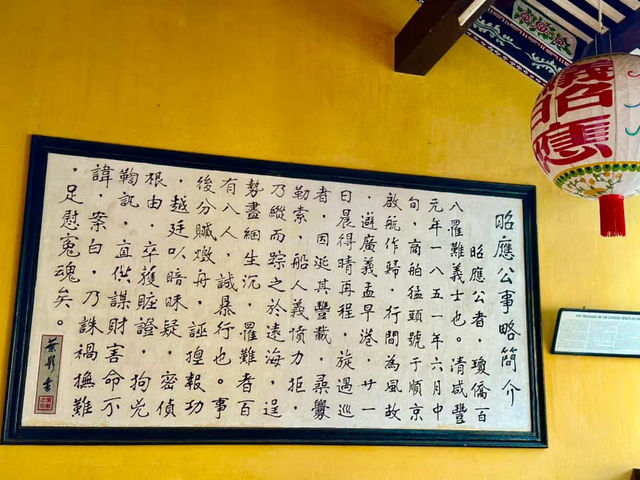 昭應公事略簡介
昭應公者，瓊僑百
八罹難義士也。清咸豐
元年一八五一年六月中
旬，商舶猛頭號于順京
啟航作歸，行間為風故
，避廣義孟早港，廿一
日晨得晴再程，旋遇巡
者，因涎其豐載，桑爨
勒索，船人義憤力拒，
乃縱而踪之於遠海，逞
勢盡綑生沉，罹難者百
有八人，誠暴行也。事
後分贓燬舟，誣捏報功
，越廷以暗昧疑，密偵
根由，卒獲賍證，拘兇
鞫訊，直供謀財害命不
諱，案白，乃誅禍撫難
，足慰寃魂矣。
義
昭應